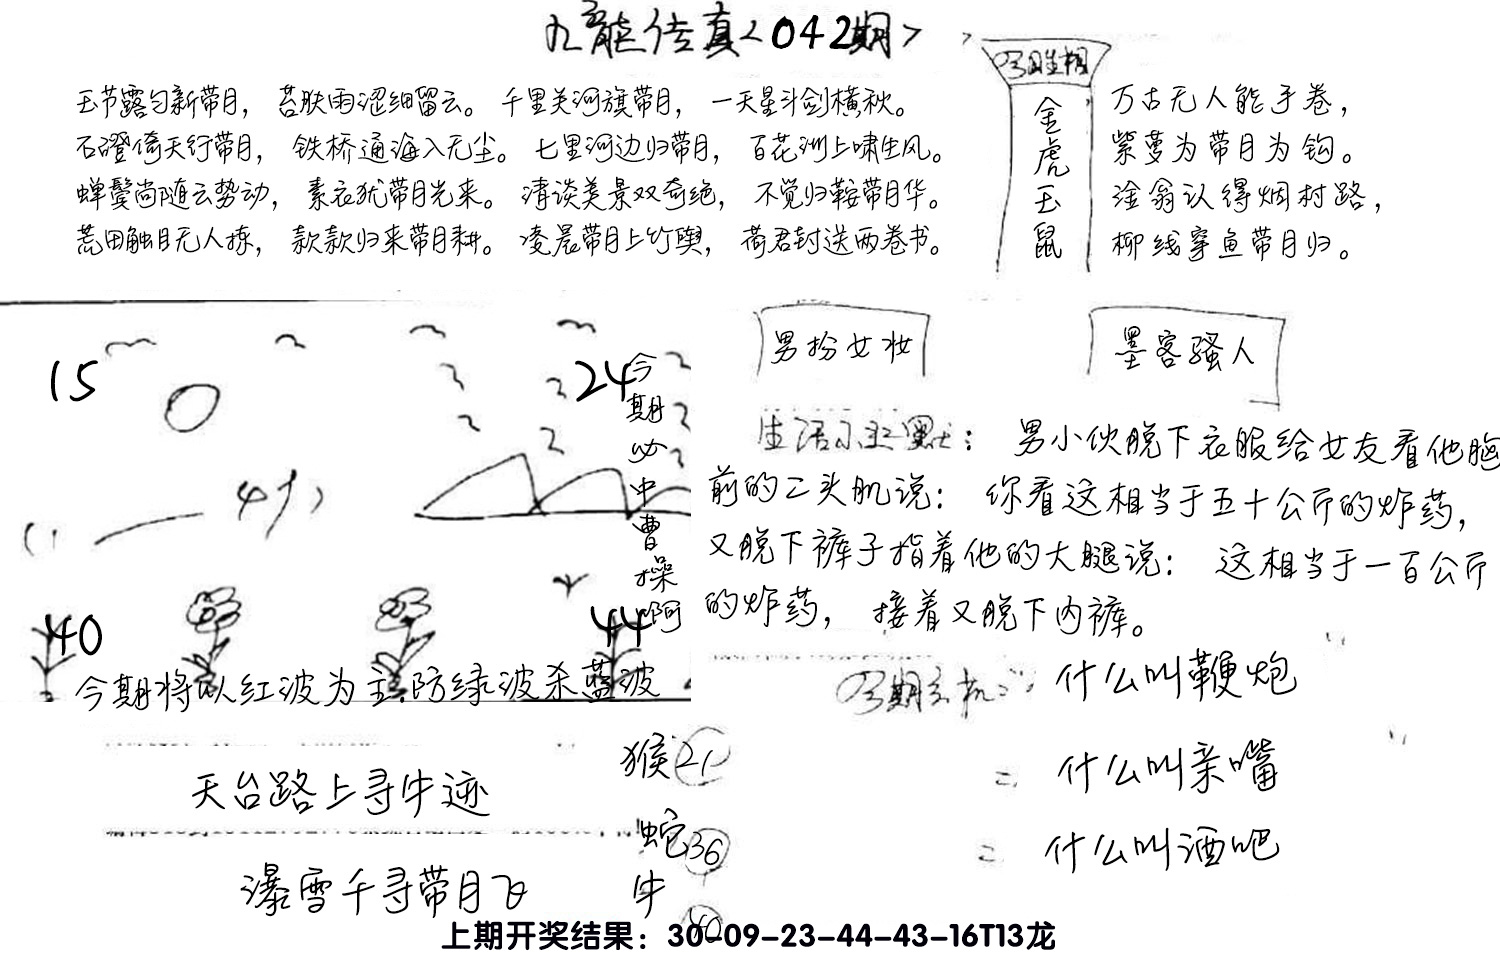 九龙传真<042期>
玉节露匀新带月，苔肤雨涩细留云。千里关河旗带月，一天星斗剑横秋。
石磴倚天行带月，铁桥通海入无尘。七里河边归带月，百花洲上啸生风。
蝉鬓尚随云势动，素衣犹带月光来。清谈美景双奇绝，不觉归鞍带月华。
荒田触目无人拣，款款归来带月耕。凌晨带月上竹舆，荷君封送两卷书。
金虎玉鼠
万古无人能手卷，
紫萝为带月为钩。
淦翁认得烟村路，
柳线穿鱼带月归。
15
24
今期必中曹操啊
40
44
今期将以红波为主.防绿波杀蓝波
男扮女妆
墨客骚人
生活小幽默：男小伙脱下衣服给女友看他胸
前的二头肌说：你看这相当于五十公斤的炸药，
又脱下裤子指着他的大腿说：这相当于一百公斤
的炸药，接着又脱下内裤。
什么叫鞭炮
什么叫亲嘴
什么叫酒吧
天台路上寻牛迹
瀑雪千寻带月飞
猴21
蛇36
牛40
上期开奖结果：30-09-23-44-43-16T13龙